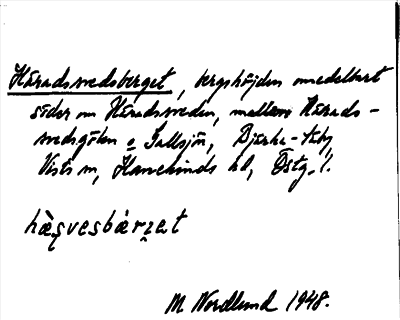 Häradsvedsberget, bergshöjden omedelbart
söder om Häradsveden, mellan Härads-
vedsgölen o Sallsjön,
Vists sn, Hanekinds hd, Östg. l.
hä̀ṣvesbär̀ʒet
M Nordlund 1948.